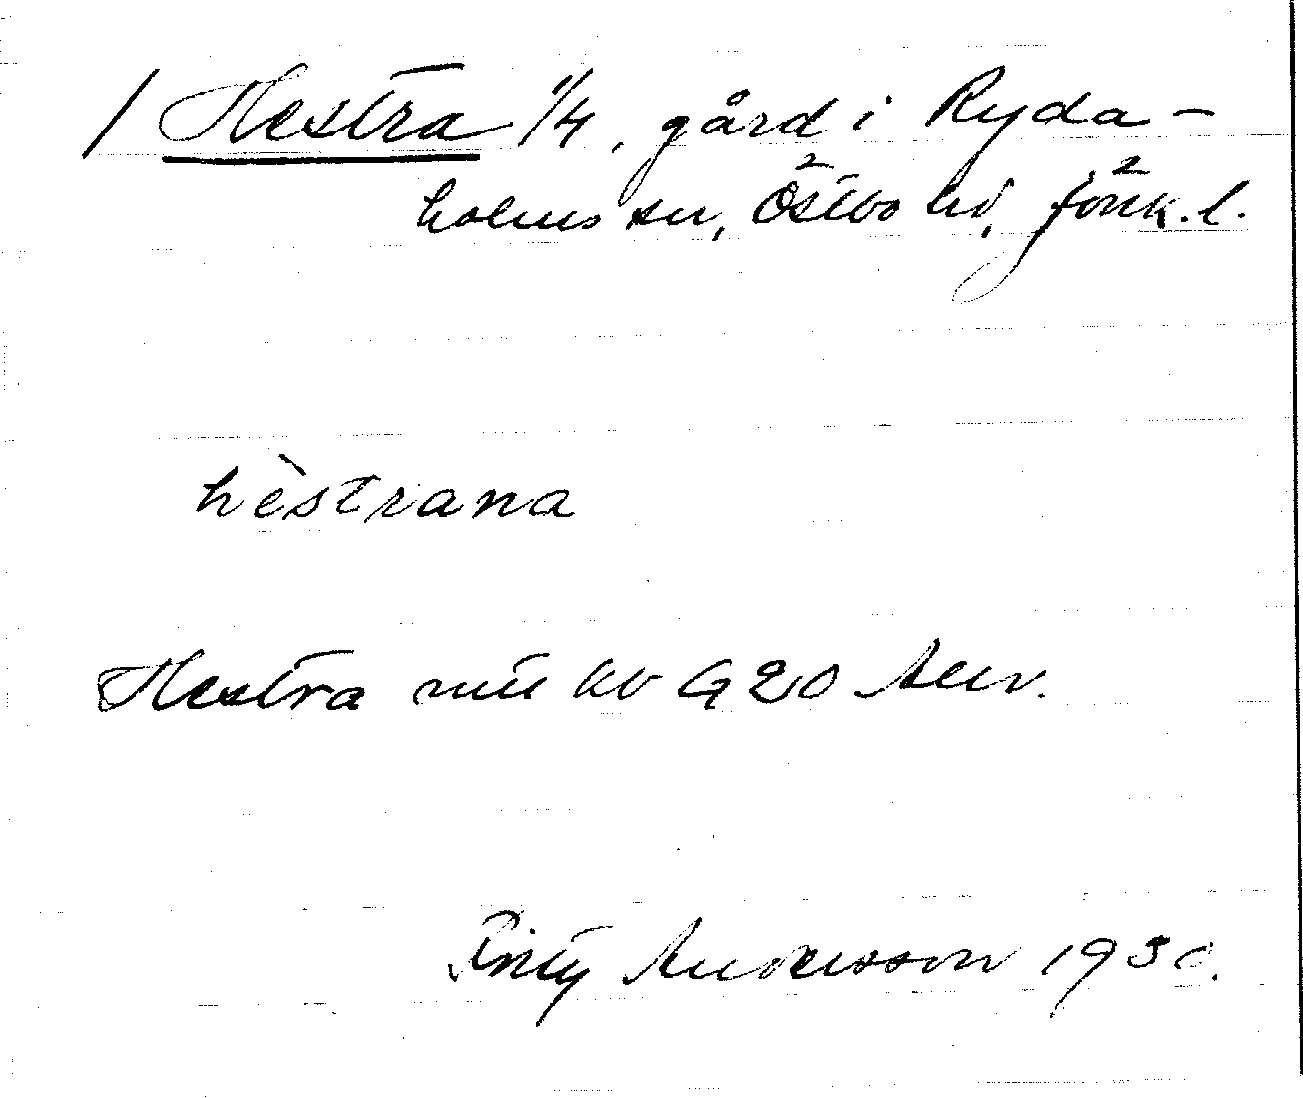 / Hestra 1/4, gård i Ryda-
holms sn, Östbo hd, Jönk. l.
hèstrana
Hestra kb G 20
Andersson 1930.